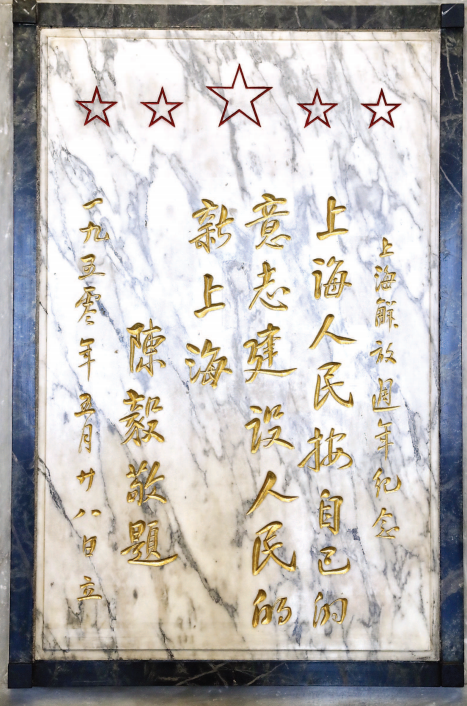 上海解放週年纪念
上海人民按自己的
意志建设人民的
新上海
陳毅敬題
一九五零年五月廿八日立